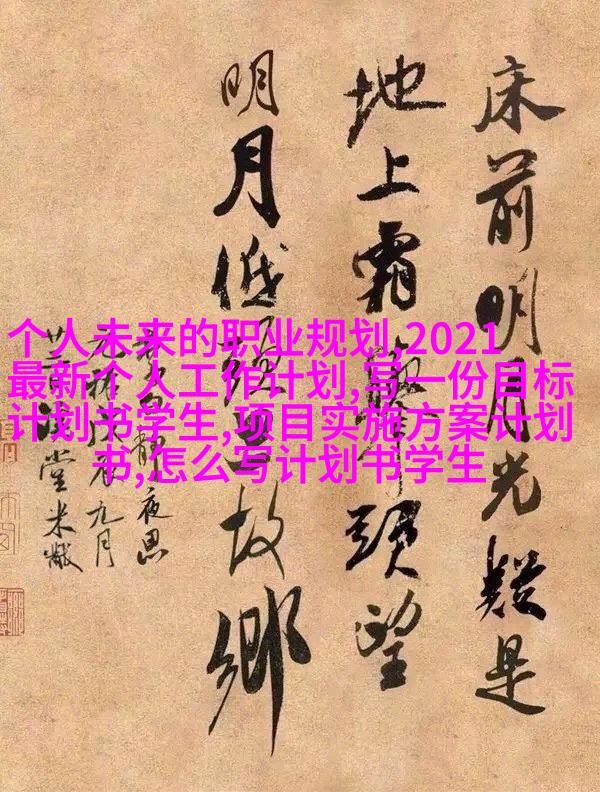 床前明月光疑是
地上霜舉頭望
明月低頭思故鄉
静夜思
元祐戊辰九月
堂米黻
个人未来的职业规划,2021
最新个人工作计划,写一份目标
计划书学生,项目实施方案计划
书,怎么写计划书学生